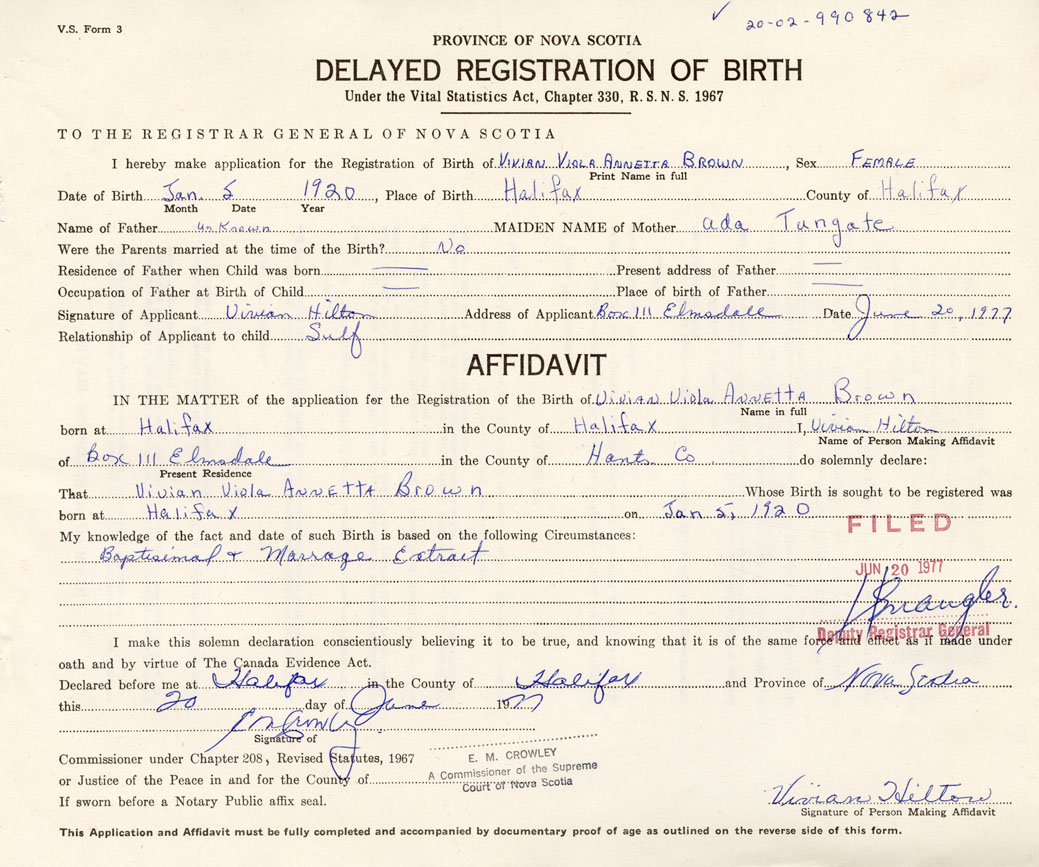 V.S. Form 3
✓ 20-02-990842
PROVINCE OF NOVA SCOTIA
DELAYED REGISTRATION OF BIRTH
Under the Vital Statistics Act, Chapter 330, R. S. N. S. 1967
TO THE REGISTRAR GENERAL OF NOVA SCOTIA
I hereby make application for the Registration of Birth of Vivian Viola Annetta Brown, Sex Female
Print Name in full
Date of Birth Jan. 5 1920, Place of Birth Halifax County of Halifax
Month Date Year
Name of Father Un Known MAIDEN NAME of Mother Ada Tungate
Were the Parents married at the time of the Birth? No
Residence of Father when Child was born — Present address of Father —
Occupation of Father at Birth of Child — Place of birth of Father —
Signature of Applicant Vivian Hilton Address of Applicant Box 111 Elmsdale Date June 20, 1977
Relationship of Applicant to child Sulf
AFFIDAVIT
IN THE MATTER of the application for the Registration of the Birth of Vivian Viola Annetta Brown
Name in full
born at Halifax in the County of Halifax I, Vivian Hilton
Name of Person Making Affidavit
of Box 111 Elmsdale in the County of Hants Co do solemnly declare:
Present Residence
That Vivian Viola Annetta Brown Whose Birth is sought to be registered was
born at Halifax on Jan 5, 1920
FILED
My knowledge of the fact and date of such Birth is based on the following Circumstances:
Baptisimal + Marrage Extract
JUN 20 1977
Deputy Registrar General
I make this solemn declaration conscientiously believing it to be true, and knowing that it is of the same force and effect as if made under
oath and by virtue of The Canada Evidence Act.
Declared before me at Halifax in the County of Halifax and Province of Nova Scotia
this 20 day of June 1977
Signature of
Commissioner under Chapter 208, Revised Statutes, 1967
or Justice of the Peace in and for the County of
E. M. CROWLEY
A Commissioner of the Supreme
Court of Nova Scotia
If sworn before a Notary Public affix seal.
Vivian Hilton
Signature of Person Making Affidavit
This Application and Affidavit must be fully completed and accompanied by documentary proof of age as outlined on the reverse side of this form.